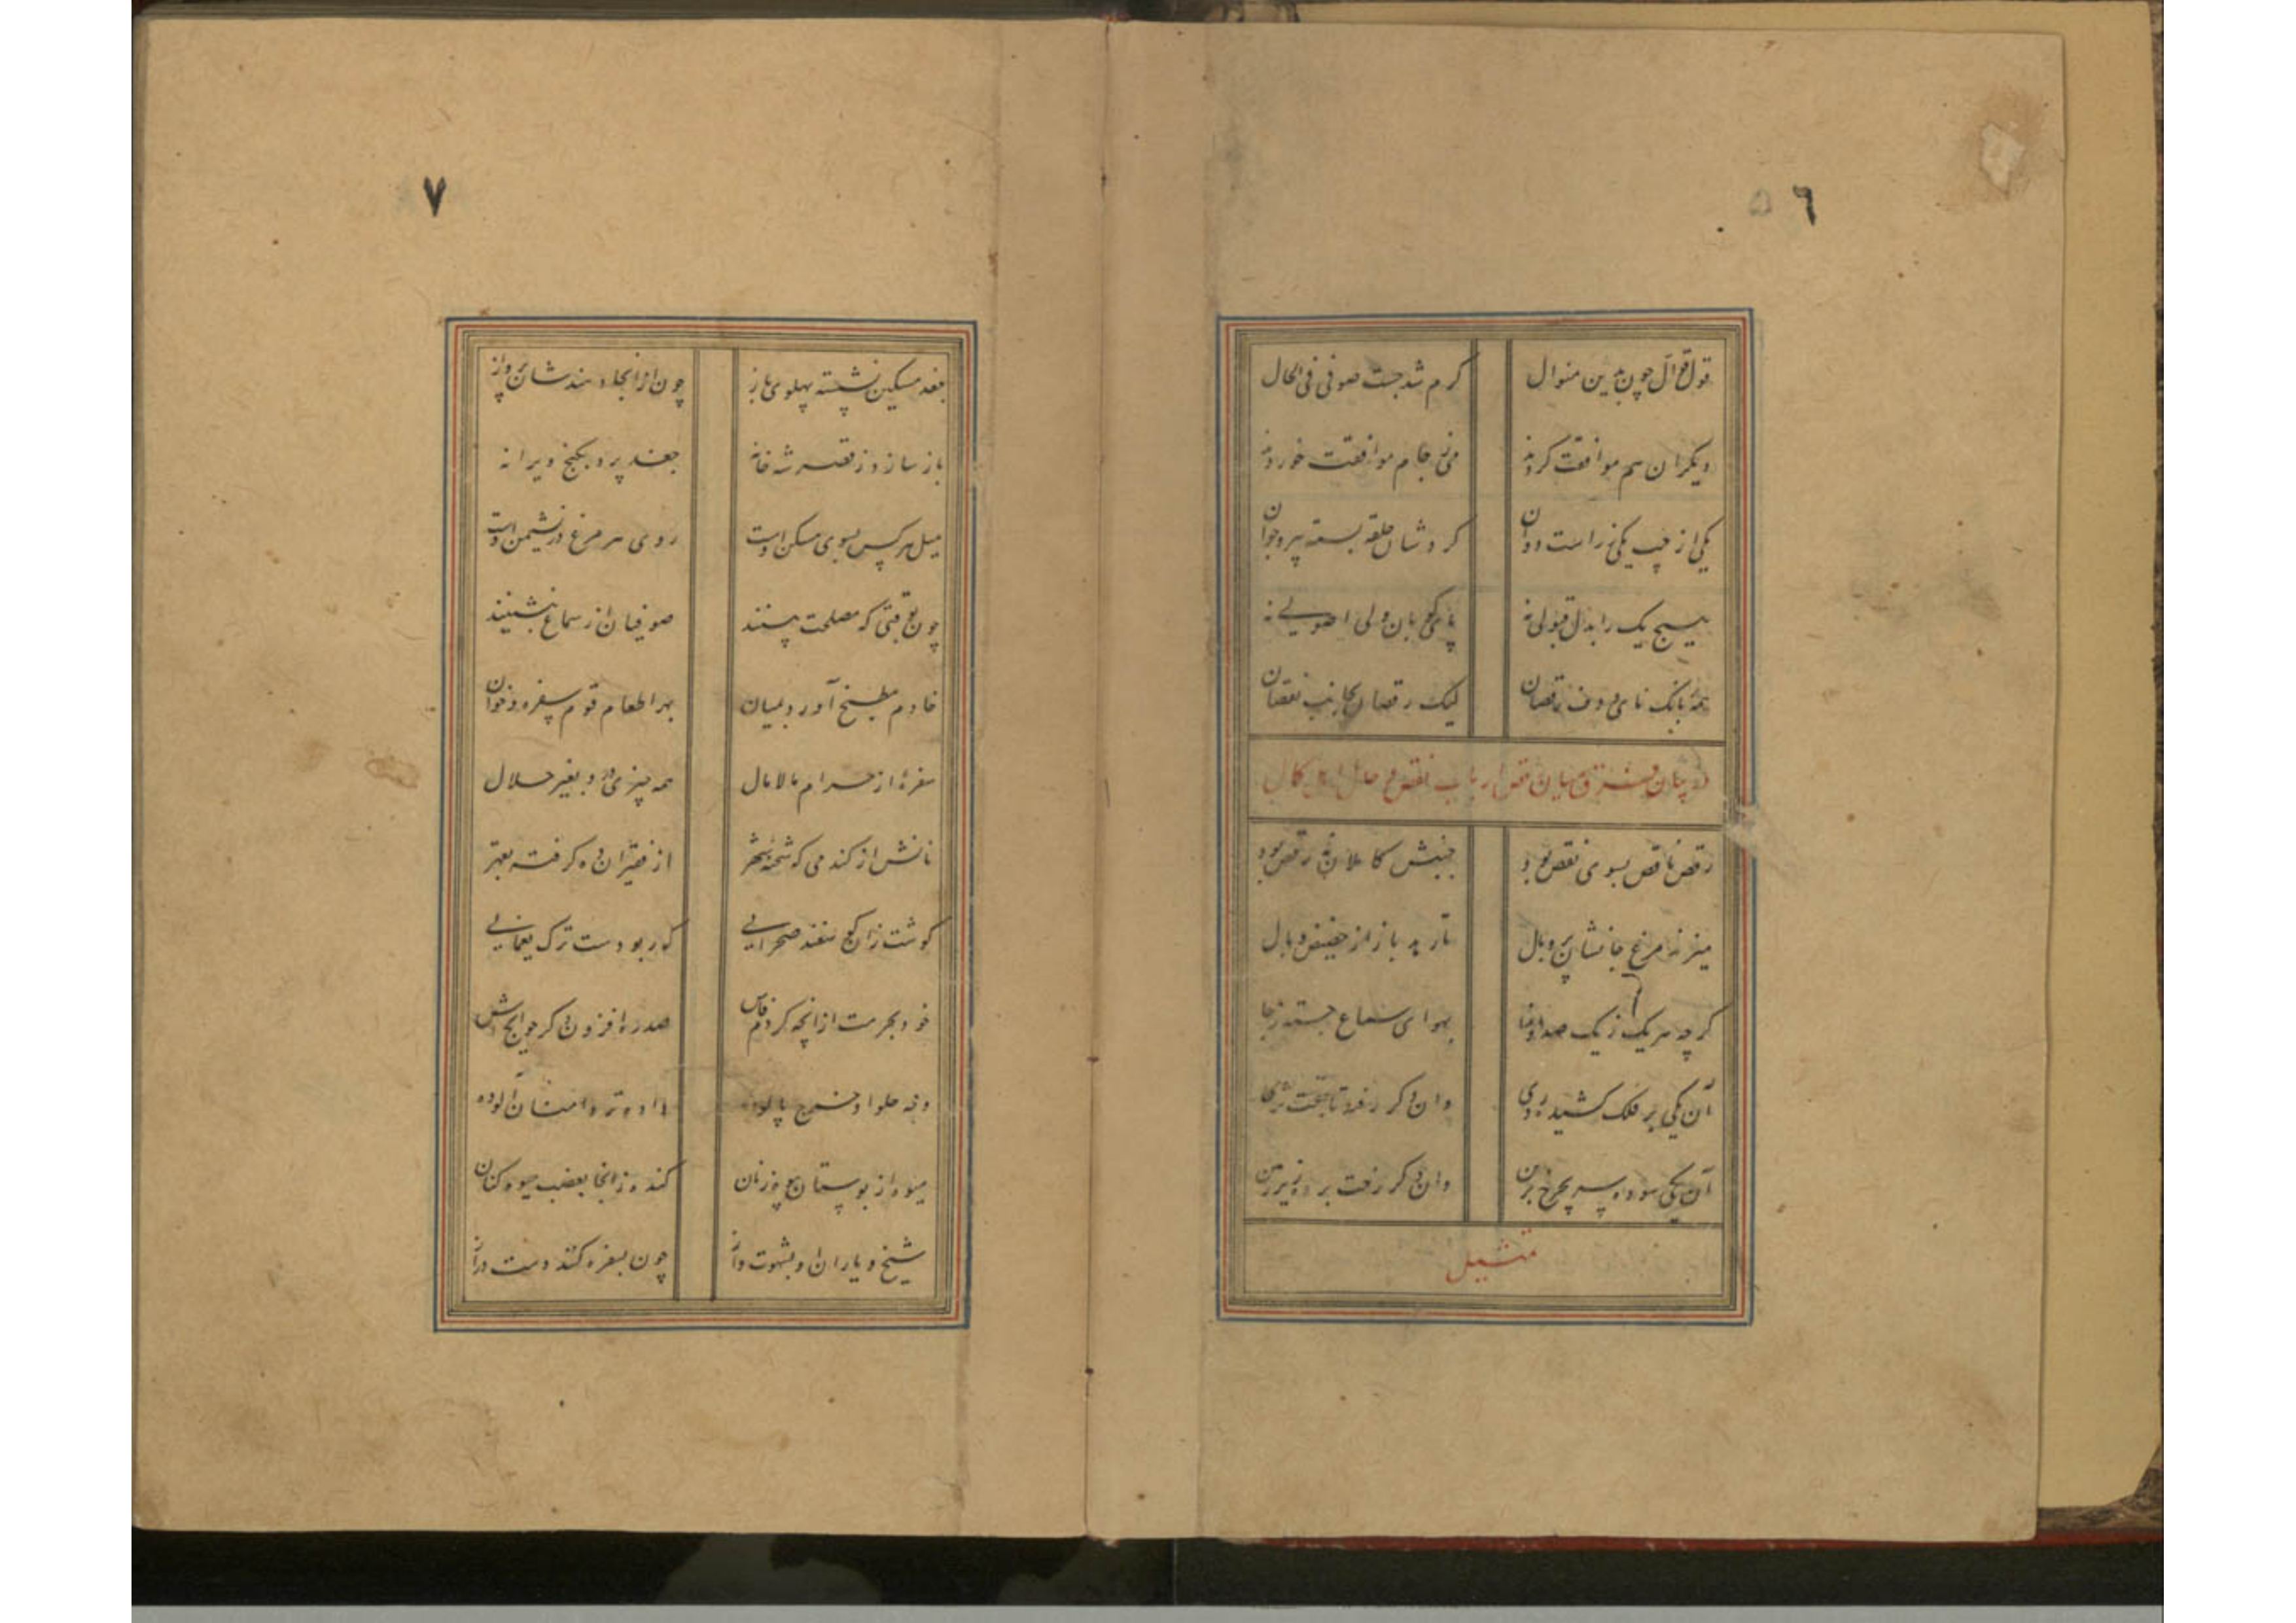 ٦
قول قوال چون بدین منوال
کرم شد جست صوفی فی الحال
دیکران هم موافقت کردند
می ز جام موافقت خوردند
یکی از چپ یکی ز راست دوان
کردشان حلقه بسته پیر و جوان
هیچ یک را بدل قبولی نه
پای کوبان ولی اصولی نه
همه ببانک نای و دف رقصان
لیک رقصان بجانب نقصان
در بیان فرق میان رقص ارباب نقص و حال اهل کمال
رقص ناقص بسوی نقص بود
جنبش کاملان نه رقص بود
میزند مرغ جانشان پر و بال
تا رهد باز از حضیض وبال
کرچه هر یک ز یک صدا و ندا
بهوای سماع جسته ز جا
آن یکی بر فلک کشیده روی
وان دکر رفته تا بتخت ثری
آن یکی سوده سر بچرخ برین
وان دکر رفت برده زیر زمین
تمثیل
٧
جغد مسکین نشسته پهلوی باز
چون از انجا دهندشان پرواز
باز سازد ز قصر شه خانه
جغد پرد بکنج ویرانه
میل هر کس بسوی مسکن اوست
روی هر مرغ در نشیمن اوست
چون بوقتی که مصلحت بینند
صوفیان از سماع بنشینند
خادم مطبخ آورد بمیان
بهر اطعام قوم سفره و خوان
سفرهٔ از حرام مالامال
همه چیزی درو بغیر حلال
نانش از کندمی که شحنه شهر
از فقیران ده کرفته بقهر
کوشت زان کوسفند صحرایی
که ربودست ترک یغمایی
خود بحرمت از انچه کردم فاش
صد ره افزون دکر حوایجهاش
وجه حلوا و خرج پالوده
داده تر دامنان آلوده
میوه از بوستان بیوه زنان
کنده ز انجا بغضب میوه کنان
شیخ و یاران او بشهوت و آز
چون بسفره کنند دست دراز